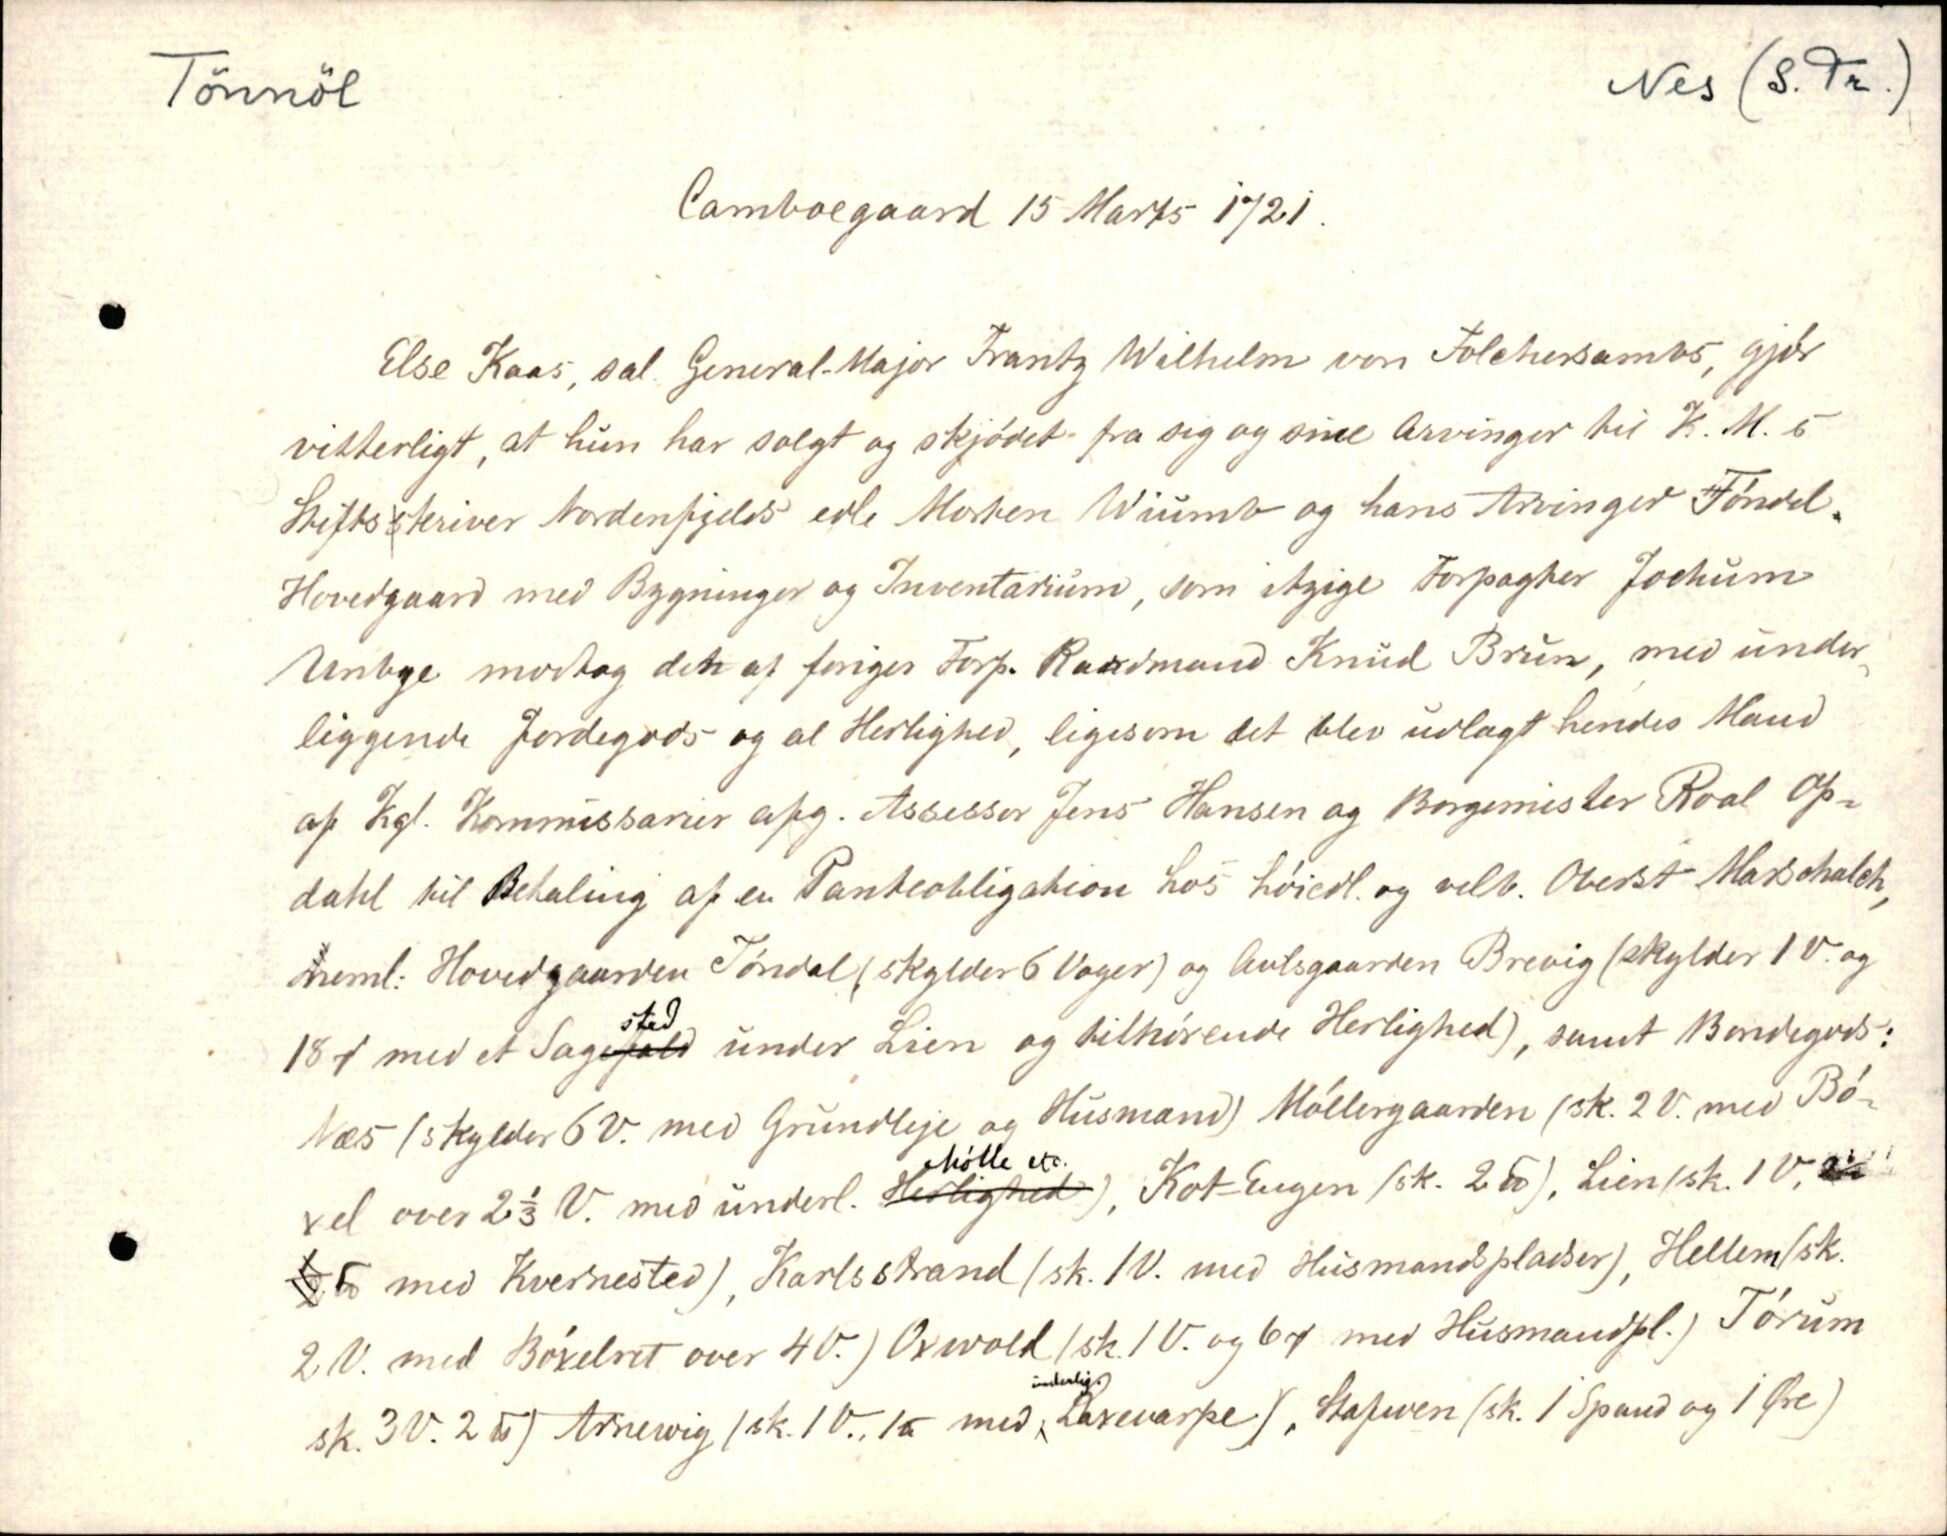 Tönnöl
Nes (S. Tr.)
Camboegaard 15 Marts 1721.
Else Kaas, sal. General-Major Frantz Wilhelm von Folchersambs, gjör
vitterligt, at hun har solgt og skjödet fra sig og sine Arvinger til K. M. s
Stiftsskriver Nordenfjelds edle Morten Wiumb og hans Arvinger Töndel
Hovedgaard med Bygninger og Inventarium, som itzige Forpagter Jochum
Unbye modtog det af foriger Forp. Raadmand Knud Brun, med under-
liggende Jordegods og al Herlighed, ligesom det blev udlagt hendes Mand
af Kgl. Kommissarier afg. Assessor Jens Hansen og Borgemister Roal Op-
dahl til Betaling af en Panteobligation hos höiedl. og velb. Oberst Marschalck,
neml: Hovedgaarden Töndal (skylder 6 Voger) og Avlsgaarden Brevig (skylder 1 V. og
18 med et Sagested under Lien og tilhörende Herlighed), samt Bondegods:
Næs (skylder 6 V. med Grundleje og Husmand) Möllergaarden (sk. 2 V. med Bö-
xel over 2 1/3 V. med underl. Mölle etc.), Kot-Engen (sk. 2 ), Lien (sk. 1 V,
med Kvernested), Karlsstrand (sk. 1 V. med Husmandspladser), Hellem (sk.
2 V. med Böxelret over 4 V.) Oxwold (sk. 1 V. og 6 med Husmandpl.) Törum
sk. 3 V. 2 ) Arnewig (sk. 1 V., 1 med underlig. Laxevarpe), Stafwen (sk. 1 Spand og 1 Øre)